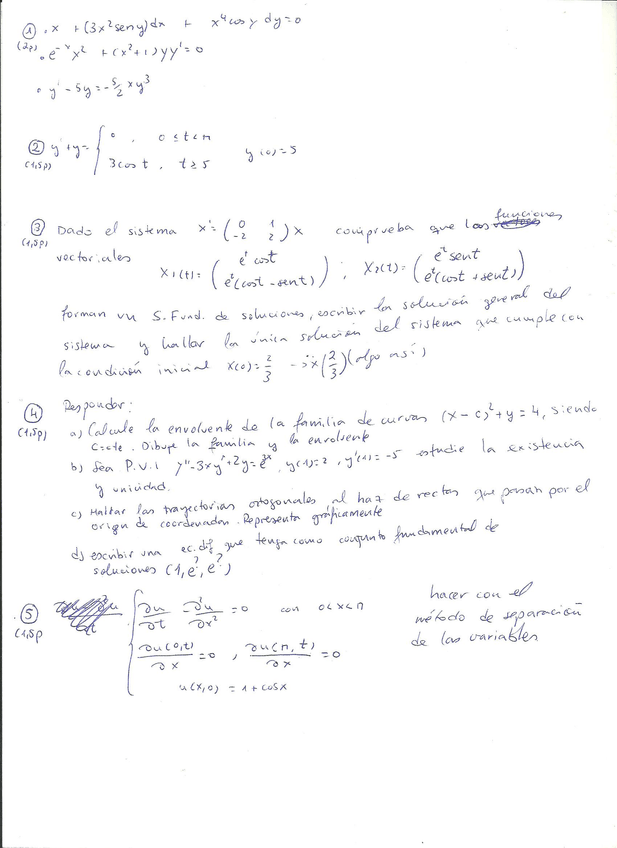 ① · x + (3x² sen y) dx + x⁴ cos y dy = 0
(2p) · e⁻ˣ x² + (x²+1) y y' = 0
· y' - 5y = -5/2 x y³
② y' + y = { 0 , 0 ≤ t < π
(1,5p) 3 cos t , t ≥ 5 y(0) = 5
③ Dado el sistema x' = (0 1 -2 2) x comprueba que las funciones
(1,5p) vectoriales x₁(t) = (eᵗ cos t eᵗ(cos t - sen t)) ; x₂(t) = (eᵗ sen t eᵗ(cos t + sen t))
forman un S. Fund. de soluciones, escribir la solución general del
sistema y hallar la única solución del sistema que cumple con
la condición inicial x(0) = 2/3 → ¿x(2 3)? (algo así)
④ Responder:
(1,5p) a) Calcule la envolvente de la familia de curvas (x-c)² + y = 4, siendo
c = cte. Dibuje la familia y la envolvente
b) Sea P.V.I y'' - 3xy' + 2y = e³ˣ, y(1) = 2, y'(1) = -5 estudie la existencia
y unicidad.
c) Hallar las trayectorias ortogonales al haz de rectas que pasan por el
origen de coordenadas. Representa gráficamente
d) escribir una ec. dif que tenga como conjunto fundamental de
soluciones (1, e^?, e^?)
⑤ { ∂u/∂t - ∂²u/∂x² = 0 con 0 < x < π hacer con el
(1,5p ∂u(0,t)/∂x = 0 , ∂u(π,t)/∂x = 0 método de separación
u(x,0) = 1 + cos x de las variables